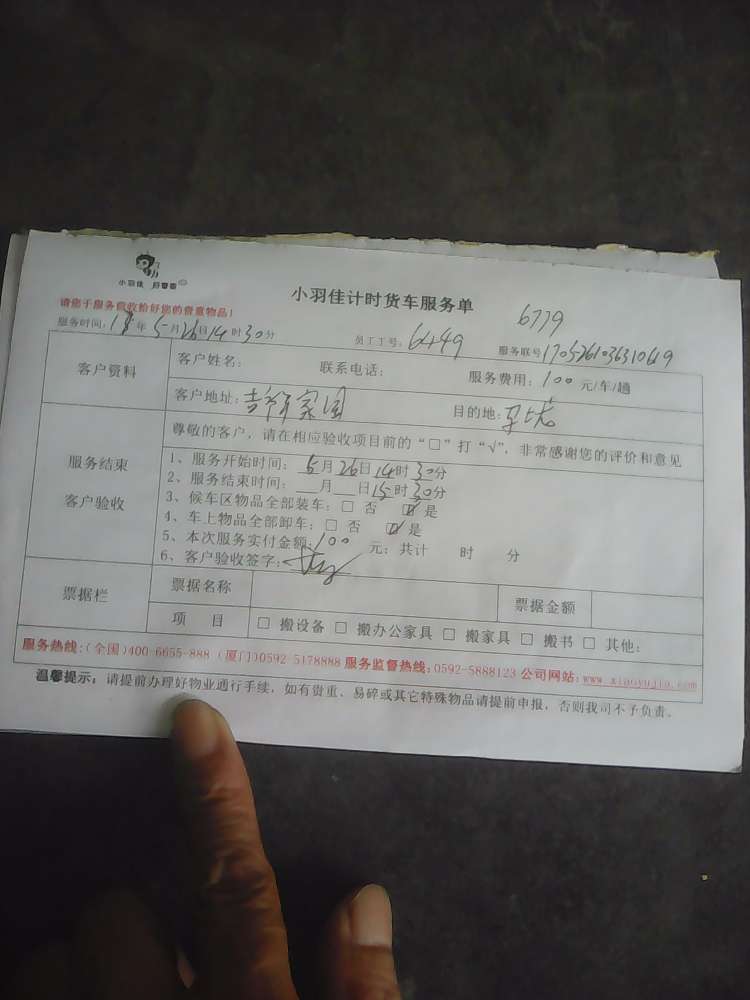 小羽佳 好帮帮
小羽佳计时货车服务单
6779
请您于服务前收拾好您的贵重物品!
服务时间: 18年5月26日14时30分 员工工号: 6449 服务联号
客户资料 客户姓名: 联系电话: 服务费用: 100 元/车/趟
客户地址: 吉祥家园 目的地:
服务结束 客户验收
尊敬的客户，请在相应验收项目前的“□”打“√”，非常感谢您的评价和意见
1、服务开始时间: 5月26日14时30分
2、服务结束时间: 月 日15时30分
3、候车区物品全部装车: □ 否 ☑ 是
4、车上物品全部卸车: □ 否 ☑ 是
5、本次服务实付金额: 100 元; 共计 时 分
6、客户验收签字:
票据栏 票据名称 票据金额
项 目 □ 搬设备 □ 搬办公家具 □ 搬家具 □ 搬书 □ 其他:
服务热线:(全国)400-6655-888 (厦门)0592-5178888 服务监督热线:0592-5888123 公司网站:www.xiaoyujia.com
温馨提示: 请提前办理好物业通行手续，如有贵重、易碎或其它特殊物品请提前申报，否则我司不予负责。